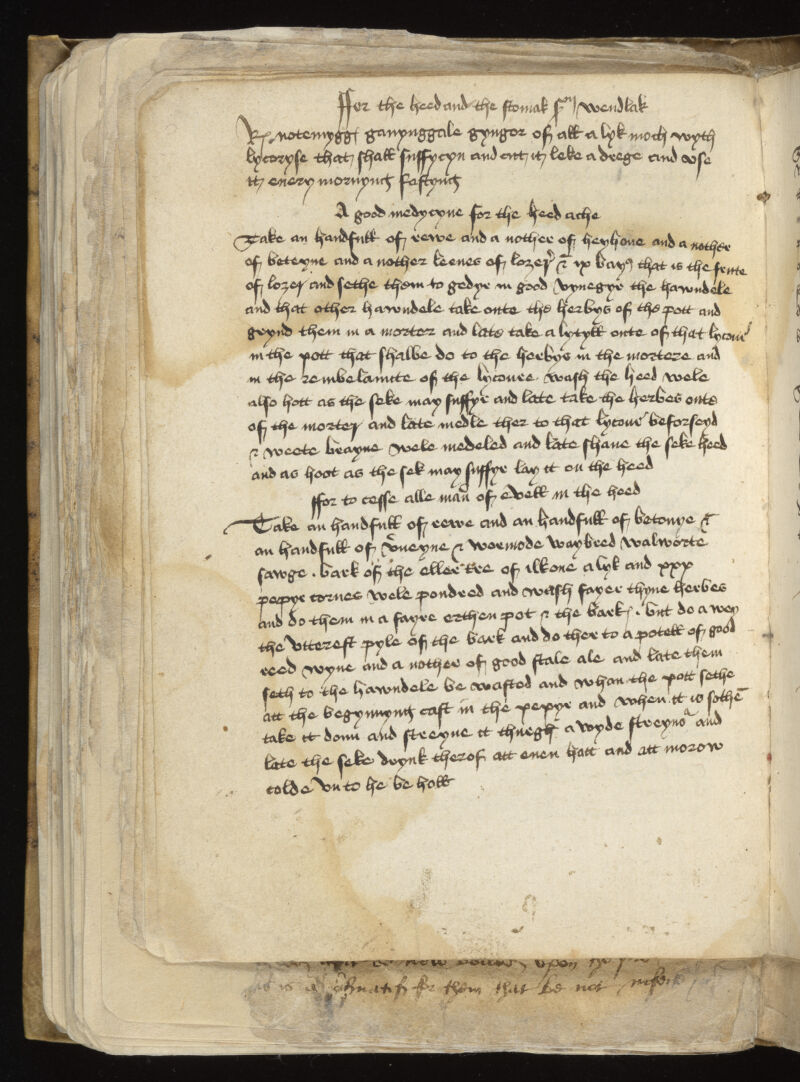 Ffor the heed and the stomak wendlak
notemyggℓ ganynggale gyngor of all a lyk moch wyth
lycoryse that shall suffycyn and ett it leke a drege and vse
it euery mornyng fastyng
A good medycyne for the heed ache
Take an handfull of rewe and a nother of heyhoue and a nother
of beteyne and a nother leeues of lorer & ix bays that is the frute
of lorer and sethe them to gedyr in good vynegyr the hawndele
and that other hawndele take oute the herbys of the pott and
grynd them in a morter and late take a lytyll oute of that lycour
in the pott that shalbe do to the herbys in the mortere and
in the remelaunte of the lycoure wash the heed wele
also hott as the seke may suffyr and late take the herbes oute
of the morter and late medle ther to that lycour beforseyd
& weete brayne wele medeled and late shaue the seke heed
and as hoot as the sek may suffyr lay it on the heed
Ffor to cesse alle man of evell in the heed
Take an handfull of rewe and an handfull of betonye &
an handfull of v̄ueyne & wormode waybred walworte
sawge . bark of the eller tre of ilkone a lyk and xxx
pepyr cornes wele pondred and wash fayer thyne herbes
and do them in a fayre erthen pot & the bark . but do a wey
the vtterest pyle of the bark and do ther to a potell of good
reed wyne and a nother of good stale ale and late them
seth to the hawndele be wasted and whan the pott sethe
att the begynnyng cast in the pepyr and when it is sothē
take it doun and streyne it thurgh a wyde streynor and
late the seke drynk therof att euen hatt and att morow
colde vn to he be holl
them that be not